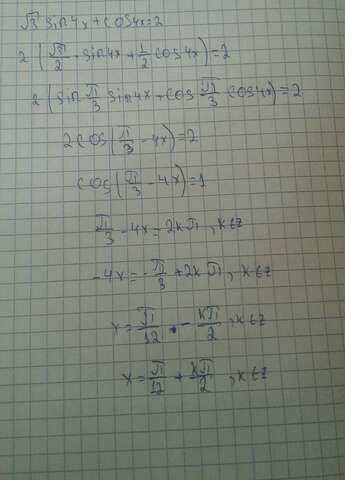 √3 sin4x + cos4x = 2
2 (√3/2 · sin4x + 1/2 cos4x) = 2
2 (sin π/3 sin4x + cos π/3 cos4x) = 2
2cos(π/3 - 4x) = 2
cos(π/3 - 4x) = 1
π/3 - 4x = 2kπ, k∈z
-4x = -π/3 + 2kπ, k∈z
x = π/12 - kπ/2, k∈z
x = π/12 + kπ/2, k∈z